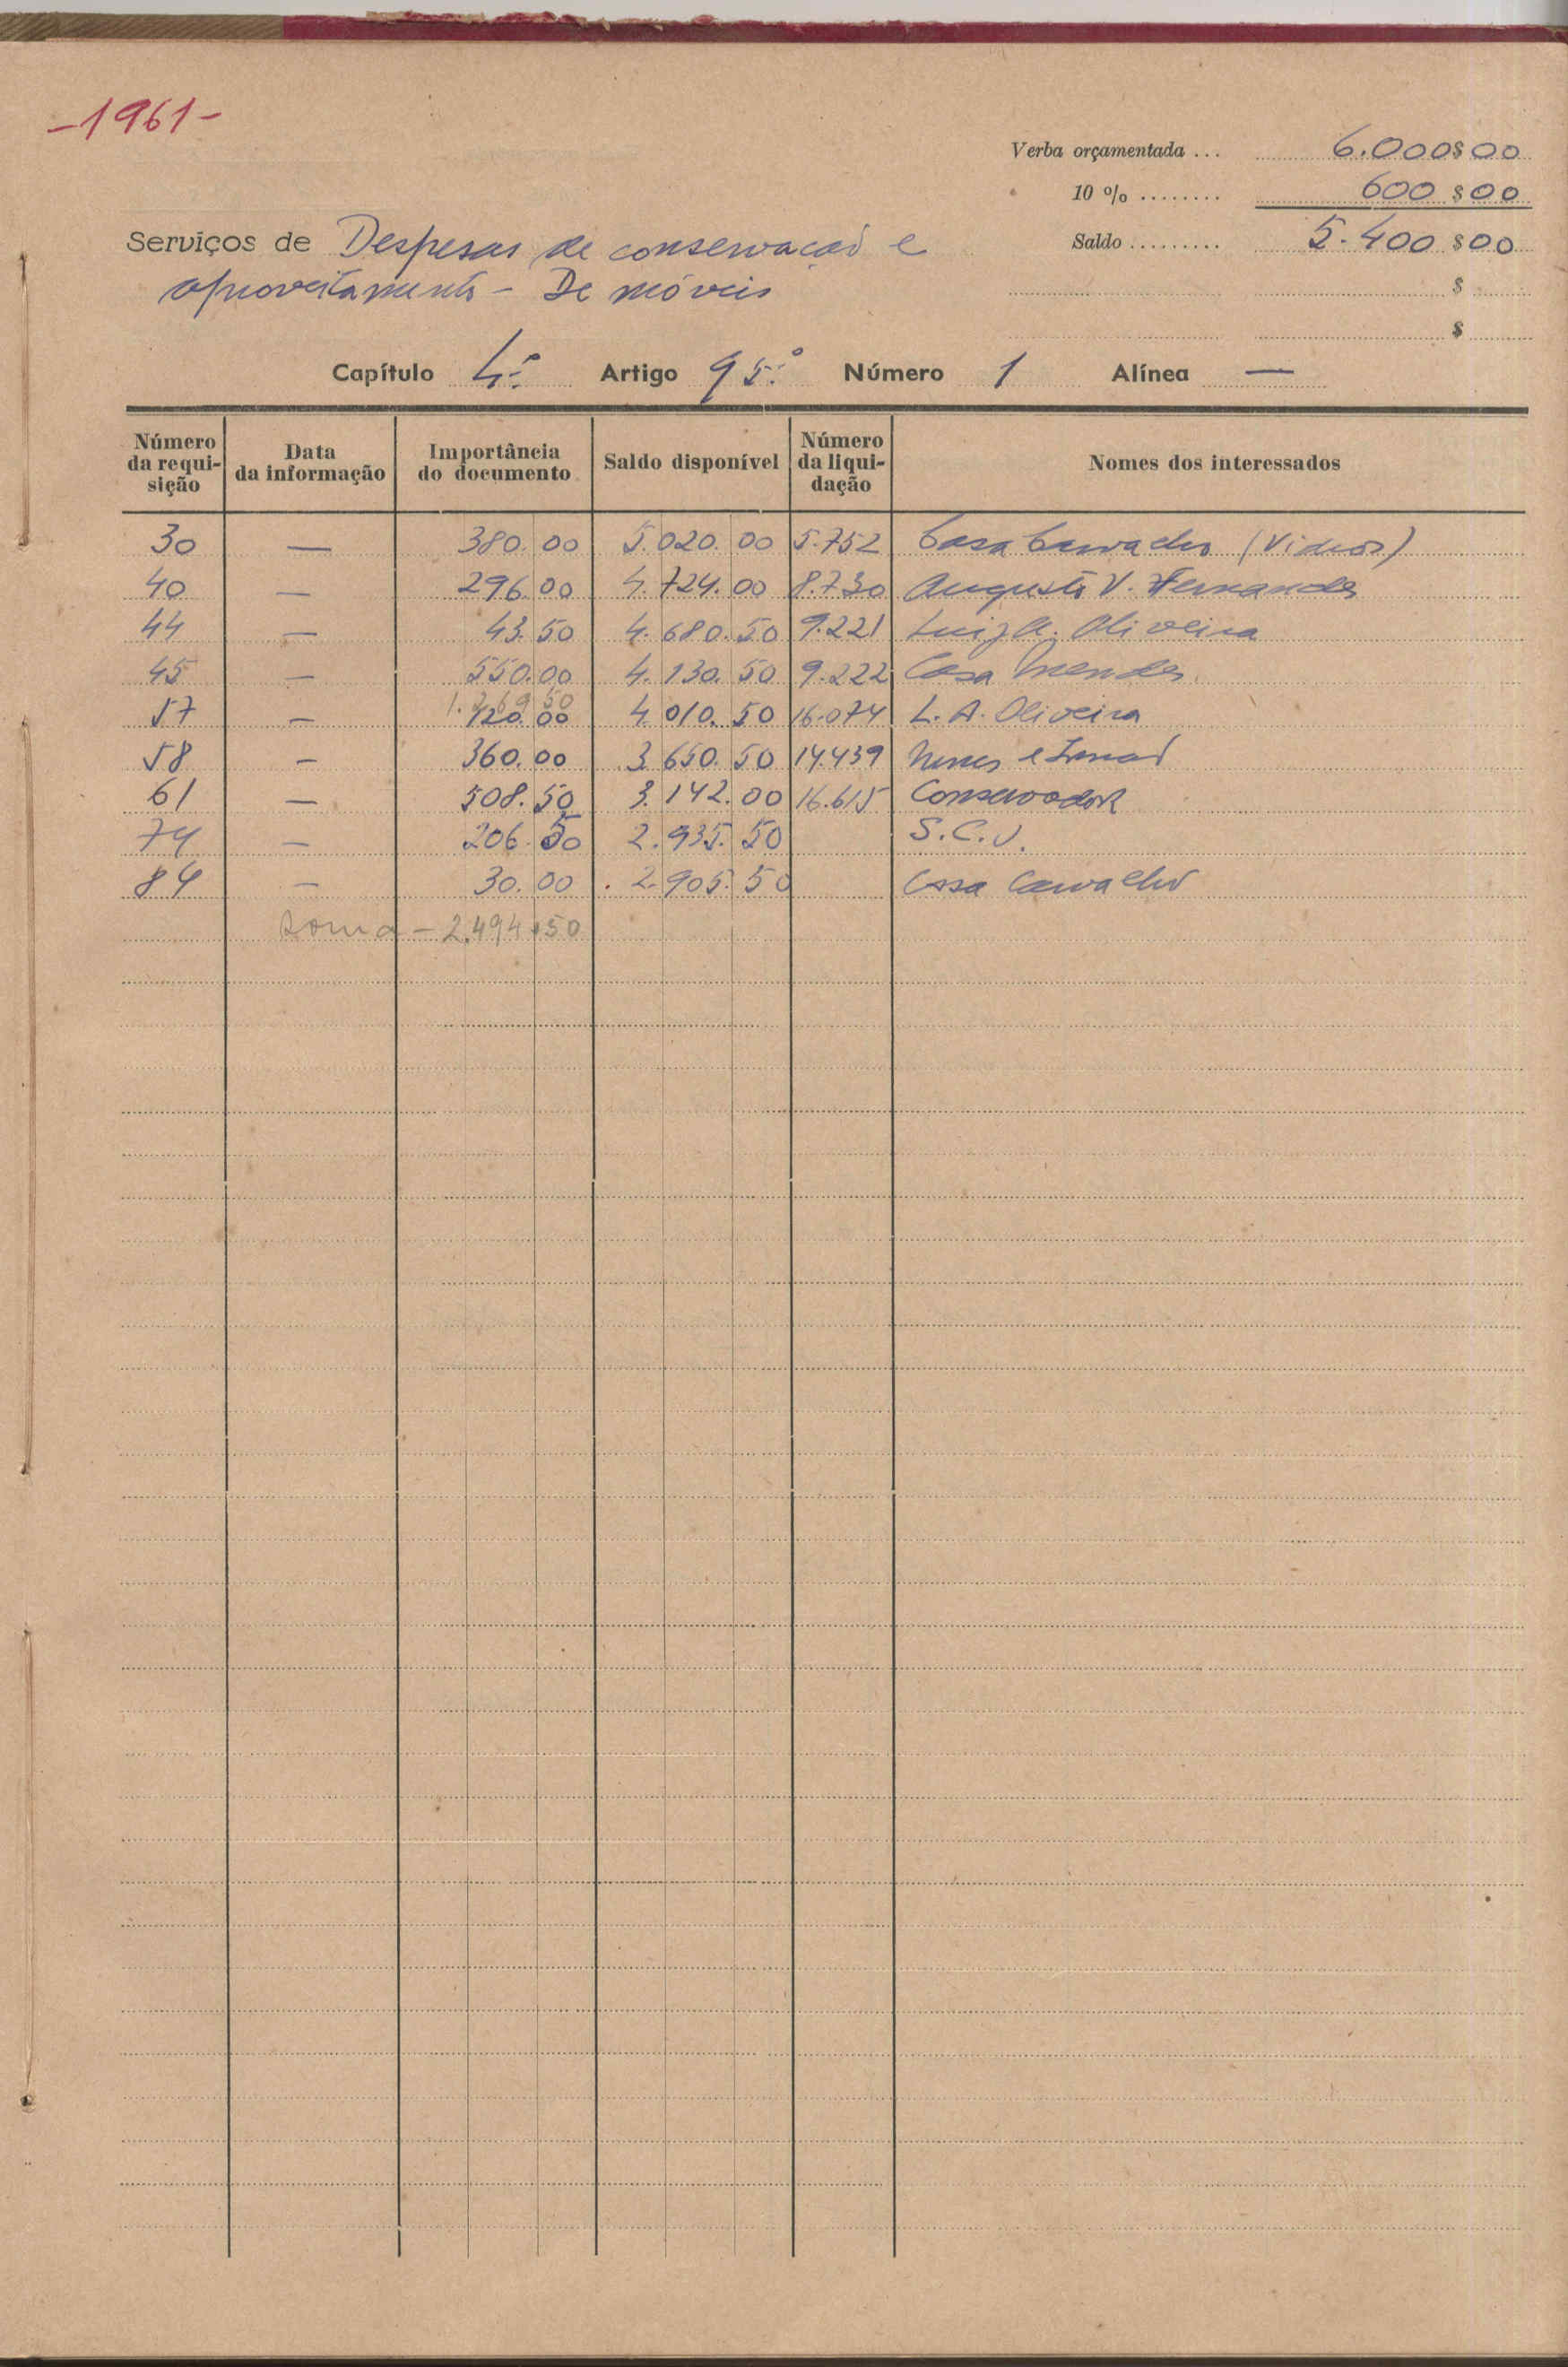 -1961-
Verba orçamentada ... 6.000$00
10 % ........ 600$00
Serviços de Despesas de conservação e
Saldo ......... 5.400$00
aproveitamento - De móveis
$
$
Capítulo 4.º Artigo 95.º Número 1 Alínea —
Número da requi-sição Data da informação Importância do documento Saldo disponível Número da liqui-dação Nomes dos interessados
30 — 380.00 5.020.00 5.752 Casa Carvalho (Vidros)
40 — 296.00 4.724.00 8.730 Augusto V. Fernandes
44 — 43.50 4.680.50 9.221 Luiz A. Oliveira
45 — 550.00 4.130.50 9.222 Casa Mendes
1.269.50
57 — 120.00 4.010.50 16.074 L. A. Oliveira
58 — 360.00 3.650.50 14.439 Nunes e Irmão
61 — 508.50 3.142.00 16.615 Conservador
74 — 206.50 2.935.50 S.C.J.
84 — 30.00 2.905.50 Casa Carvalho
Soma - 2.494$50